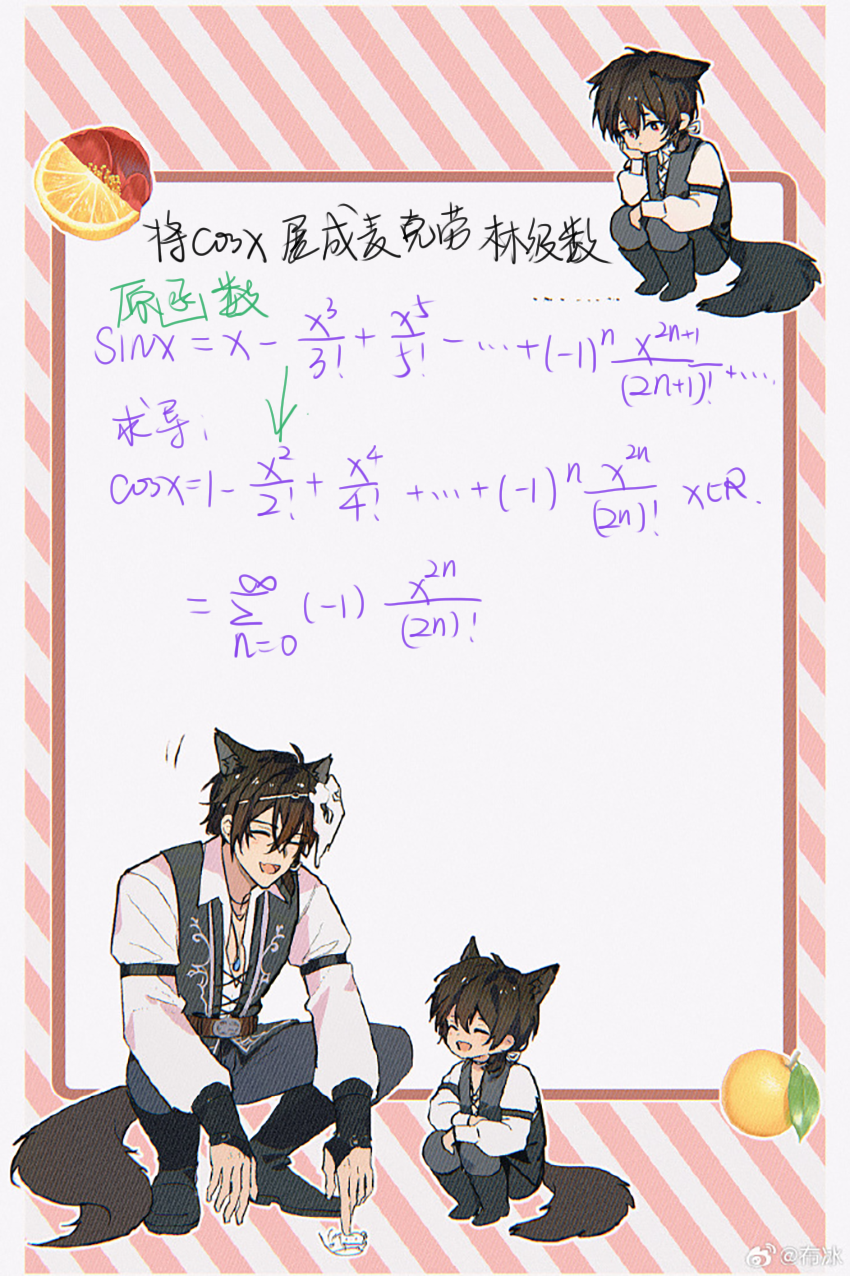 将cosx展成麦克劳林级数
原函数
sinx = x - x³/3! + x⁵/5! - ... + (-1)ⁿ x²ⁿ⁺¹/(2n+1)! + ...
求导:
cosx = 1 - x²/2! + x⁴/4! + ... + (-1)ⁿ x²ⁿ/(2n)! x∈R.
= ∑_{n=0}^{∞} (-1) x²ⁿ/(2n)!
@布冰